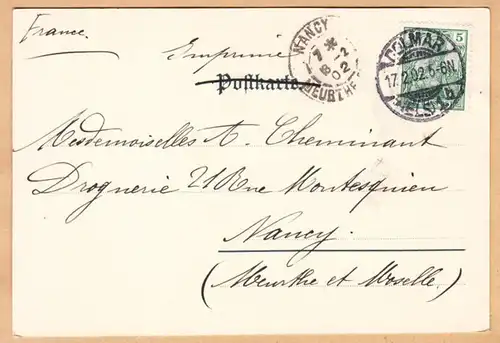 France.
Imprimé
NANCY
7*
18-2
02
MEURTHE
COLMAR
17.2.02.5-6N.
(ELS.)
5
Postkarte
Mesdemoiselles A. Cheminant
Droguerie 21 Rue Montesquieu
Nancy.
(Meurthe et Moselle).